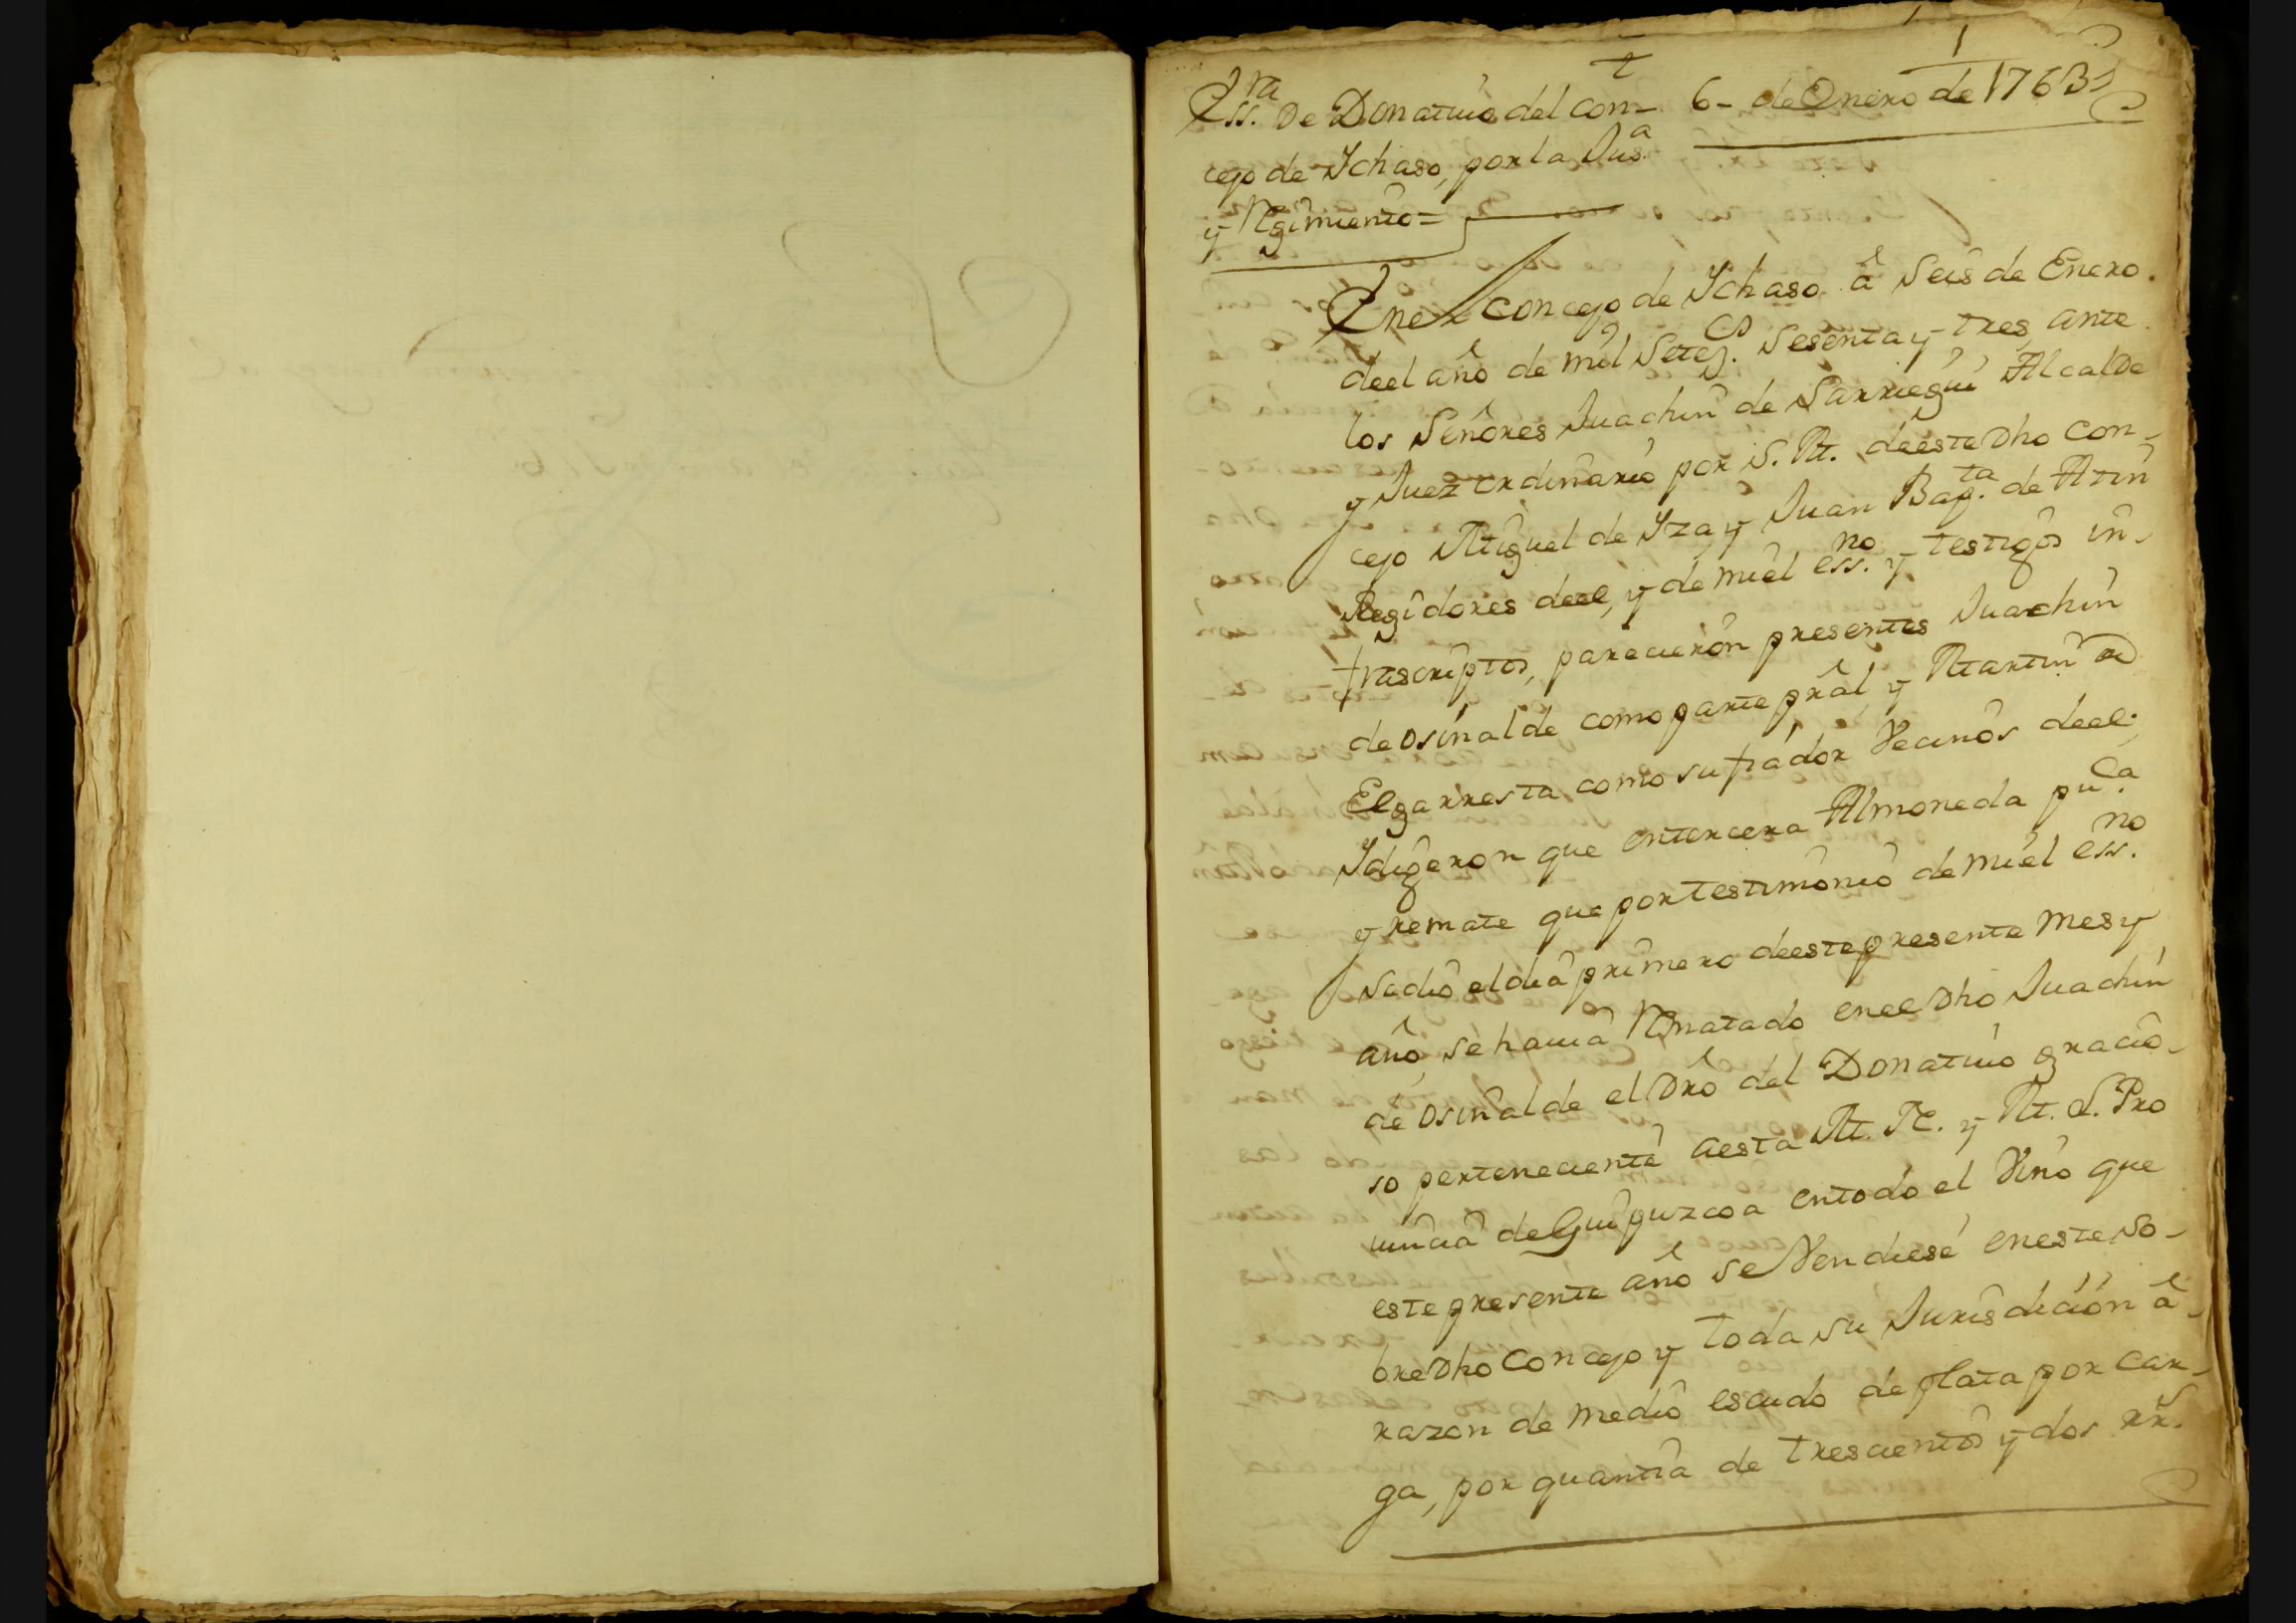 1
Ess.ra De Donativo del con- 6- de Enero de 1763
cejo de Ychaso, por la Jus.a
y Regimiento=
Enel Concejo de Ychaso â Seis de Enero
deel año de mil Setez.os Sesenta y tres, ante
los Señores Juachin de Sarriegui Alcalde
y Juez ordinario por S. M. deeste Dho Con-
cejo Miguel de Yza y Juan Bap.ta de Atin
Regidores deel, y de miel ess.no y testigos in-
frascriptos, parecieron presentes Juachin
de Osinalde como parte prâl, y Martin de
Elgarresta como su fiador Vecinos deel;
Y digeron que entercera Almoneda pu.ca
y remate que por testimonio de miel ess.no
sedio el dia primero deeste presente Mes y
año, se havia Rematado enel Dho Juachin
de Osinalde el Drô del Donativo gracio-
so perteneciente aesta M. N. y M. L. Pro
vincia de Guipuzcoa entodo el Vino que
este presente año se Vendiese eneste so-
bre Dho Concejo y toda su Jurisdición â
razon de medio escudo de plata por car-
ga, por quantia de trescientos y dos rr.s